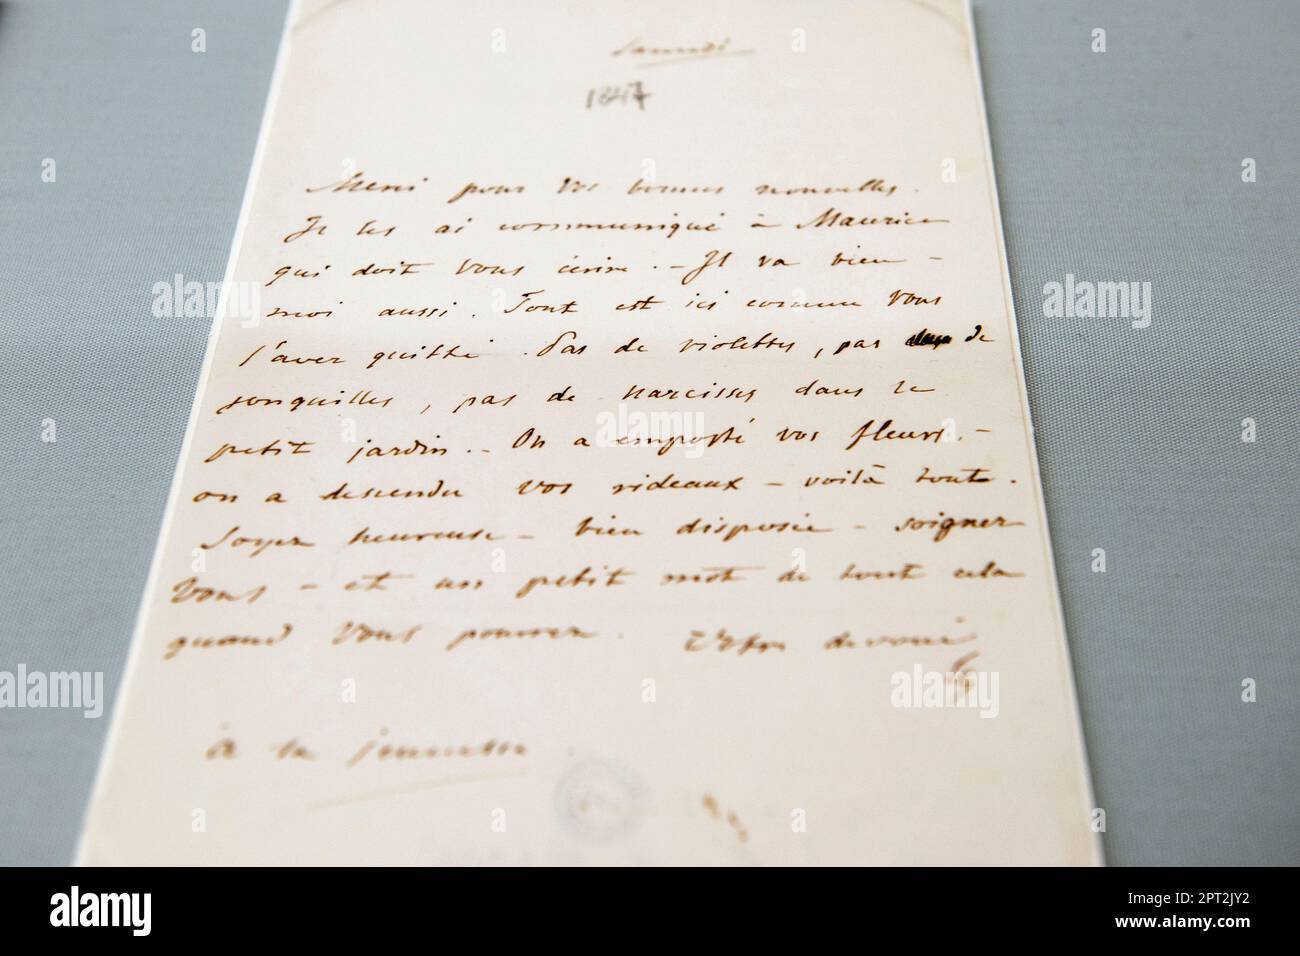 Samedi
1847
Merci pour vos bonnes nouvelles.
Je les ai communiqué à Maurice
qui doit vous écrire. - Il va bien -
moi aussi. Tout est ici comme vous
l'avez quitté. Pas de violettes, pas de
jonquilles, pas de narcisses dans le
petit jardin. - On a emporté vos fleurs, -
on a descendu vos rideaux - voilà tout.
Soyez heureuse - bien disposée - soignez
vous - et un petit mot de tout cela
quand vous pourrez. Votre dévoué
à la jeunesse
alamy
Image ID: 2PT2JY2
www.alamy.com